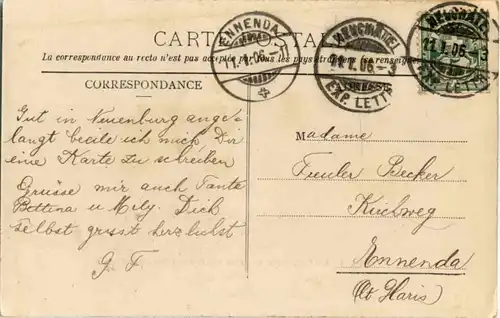 CARTE POSTALE
La correspondance au recto n'est pas acceptée par tous les pays étrangers (se renseigner
CORRESPONDANCE
Gut in Neuenburg ange-
langt beeile ich mich Dir
eine Karte zu schreiben
Grüsse mir auch Tante
Bettina u Mely. Dich
selbst grüsst herzlichst
G. F
ENNENDA
11.V.06.-7
NEUCHATEL
11.V.06.-3
EXP. LETT
NEUCHATEL
11.V.06.-3
EXP. LETT
Madame
Becker
Kirchweg
Ennenda
(Ct Glaris)